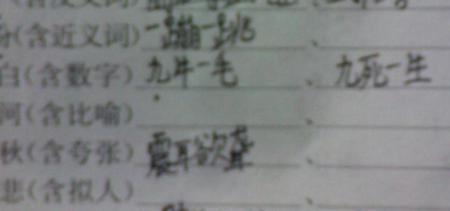 (含近义词) 一蹦一跳 、
白(含数字) 九牛一毛 、 九死一生
河(含比喻) 、
秋(含夸张) 震耳欲聋 、
悲(含拟人) 、